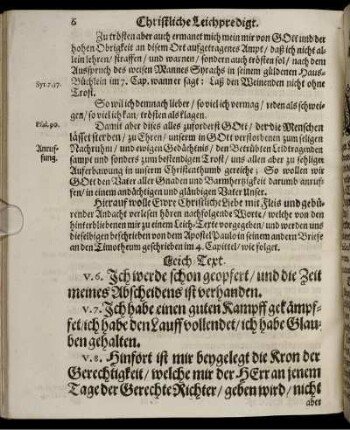 6
Christliche Leichpredigt.
Zu trösten aber auch ermanet mich mein mir von GOtt und der
hohen Obrigkeit an disem Ort aufgetragenes Ampt / daß ich nicht al-
lein lehren / straffen / und warnen / sondern auch trösten sol / nach dem
Ausspruch des weisen Mannes Syrachs in seinem güldenen Haus-
Büchlein im 7. Cap. wann er sagt: Laß den Weinenden nicht ohne
Syr.7.37.
Trost.
So wil ich demnach lieber / so viel ich vermag / reden als schwei-
gen / so viel ich kan / trösten als klagen.
Psal.90.
Damit aber dises alles zuforderst GOtt / der die Menschen
lässet sterben / zu Ehren / unserm in GOtt verstorbenen zum seligen
Anruf-
fung.
Nachruhm / und ewigen Gedächtnis / den Betrübten Leidtragenden
sampt und sonders zum bestendigen Trost / uns allen aber zu seligen
Auferbawung in unserm Christenthumb gereiche; So wollen wir
GOtt den Vater aller Gnaden und Barmhertzigkeit darumb anruf-
fen / in einem andächtigen und gläubigen Vater Unser.
Hierauf wolle Ewre Christliche Liebe mit Fleis und gebü-
render Andacht verlesen hören nachfolgende Worte / welche von den
hinterbliebenen mir zu einem Leich-Texte vorgegeben / und werden uns
dieselbigen beschrieben von dem Apostel Paulo in seinem andern Briefe
an den Timotheum geschrieben im 4. Capittel / wie folget.
Leich Text.
v.6. Ich werde schon geopfert / und die Zeit
meines Abscheidens ist verhanden.
v.7. Ich habe einen guten Kampff gekämpf-
fet / ich habe den Lauff vollendet / ich habe Glau-
ben gehalten.
v.8. Hinfort ist mir beygelegt die Kron der
Gerechtigkeit / welche mir der HErr an jenem
Tage der Gerechte Richter / geben wird / nicht
aber